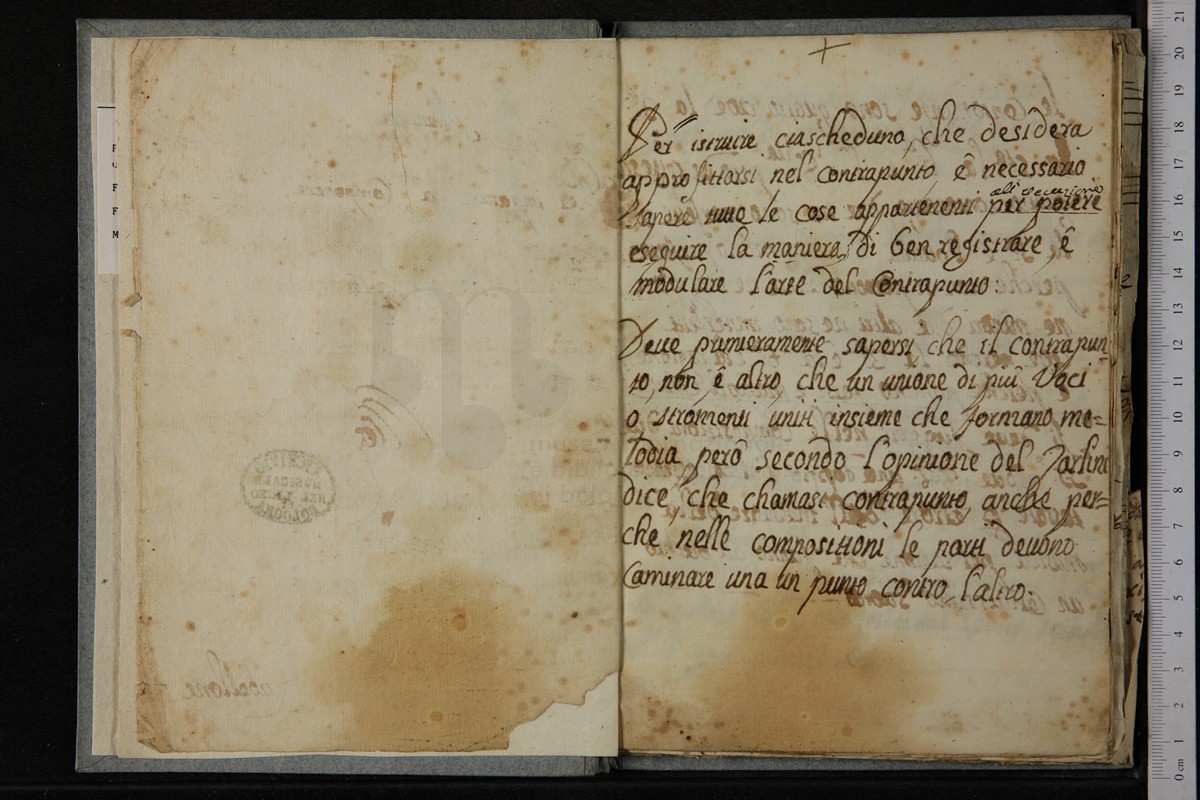 Per istruire ciascheduno, che desidera
approfittarsi nel Contrapunto, ê necessario
Sapere tutte le cose appartenenti per potere
eseguire la maniera, di ben registrare, ê
modulare l'arte del Contrapunto:
Deue primieramente sapersi che il contrapun
to, non, ê altro, che un unione di più Voci
o, stromenti uniti insieme che formano me=
lodia però secondo l'opinione del Zarlini
dice, che chamasi contrapunto, anche per=
che nelle compositioni le parti deuono
Caminare una un punto contro l'altro.